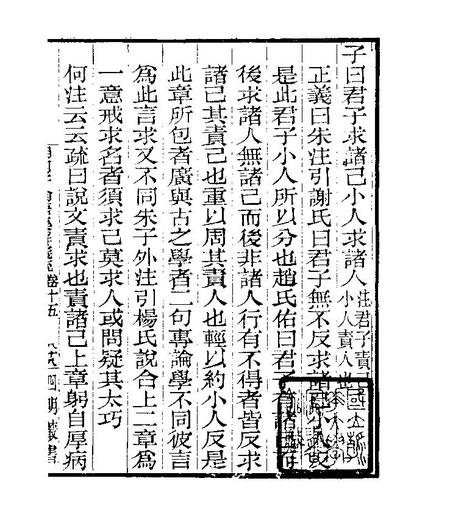 子曰君子求諸己小人求諸人注君子責己小人責人
正義曰朱注引謝氏曰君子無不反求諸己小人反
是此君子小人所以分也趙氏佑曰君子有諸己而
後求諸人無諸己而後非諸人行有不得者皆反求
諸己其責己也重以周其責人也輕以約小人反是
此章所包者廣與古之學者二句專論學不同彼言
為此言求又不同朱子外注引楊氏說合上二章為
一意戒求名者須求己莫求人或問疑其太巧
何注云云疏曰說文責求也責諸己上章躬自厚病
卷十五 四明叢書